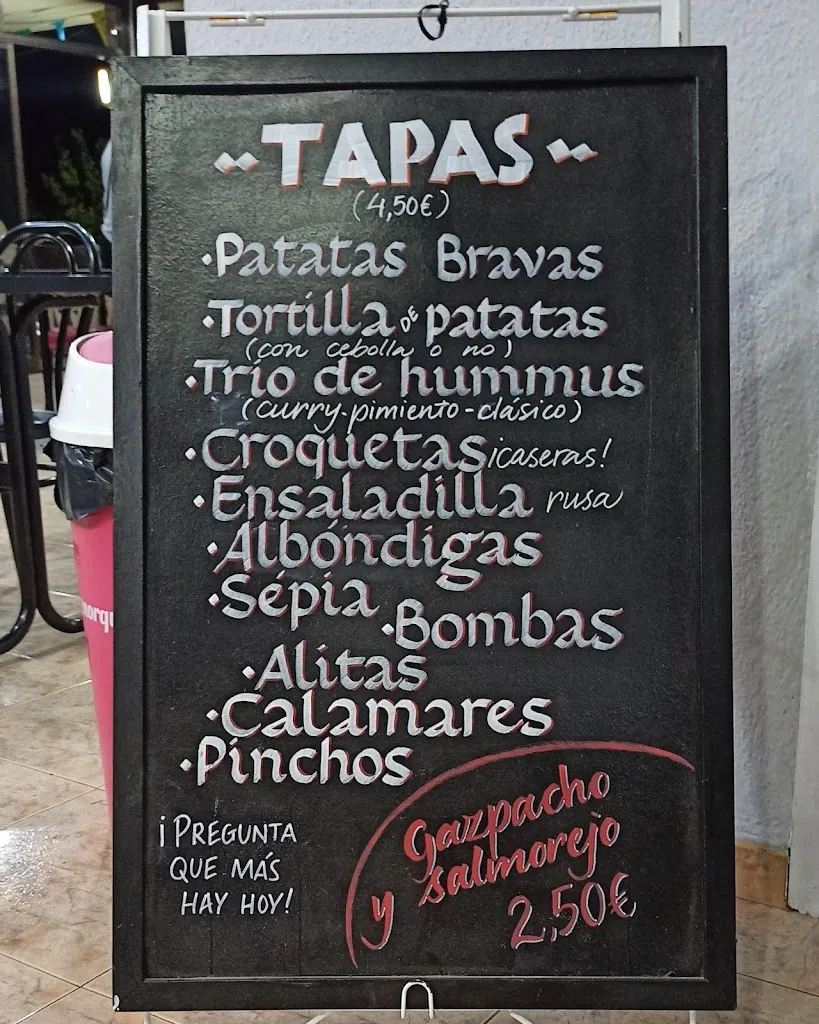 ~TAPAS~
(4,50€)
·Patatas Bravas
·Tortilla DE patatas
(con cebolla o no)
·Trío de hummus
(curry-pimiento-clásico)
·Croquetas ¡caseras!
·Ensaladilla rusa
·Albóndigas
·Sépia
·Bombas
·Alitas
·Calamares
·Pinchos
¡PREGUNTA
QUE MÁS
HAY HOY!
Gazpacho
y salmorejo
2,50€